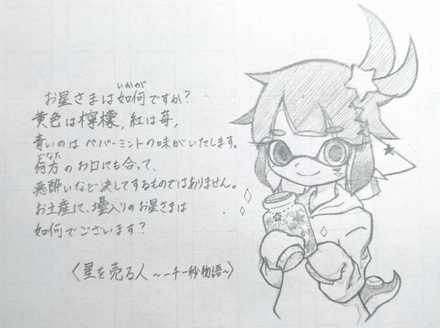 お星さまは如何ですか?
いかが
黄色は檸檬、紅は苺、
青いのは ペパーミントの味がいたします。
どなた
何方のお口にも合って、
悪酔いなど決してするものではありません。
お土産に、壜入りのお星さまは
如何でございます?
〈星を売る人 〜一千一秒物語〜〉